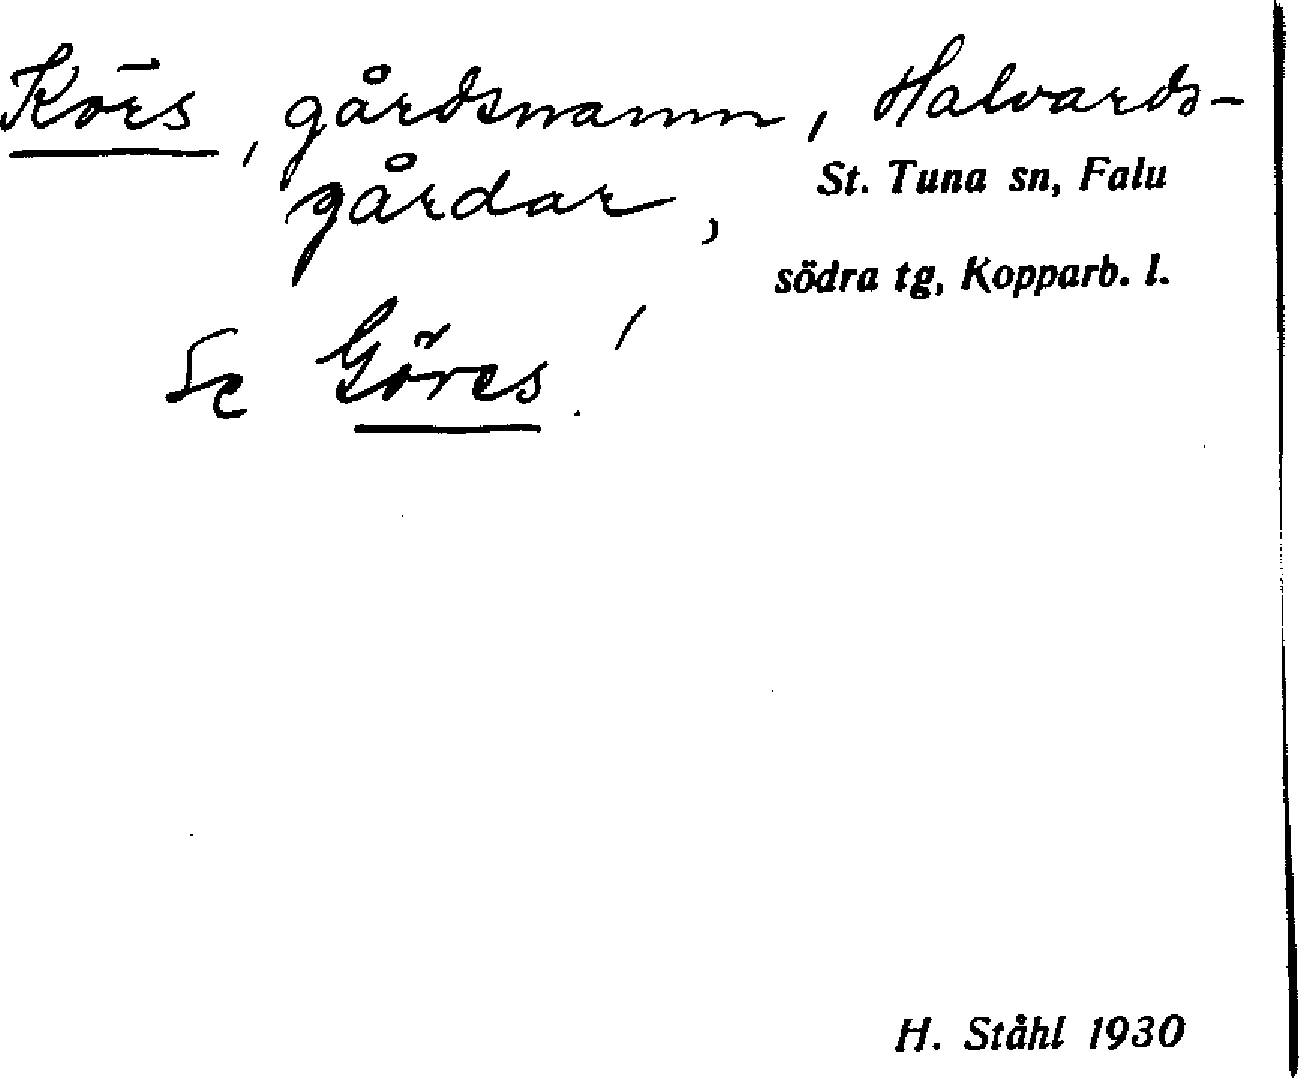 Körs, gårdsnamn, Halvards-
gårdar,
St. Tuna sn, Falu
södra tg, Kopparb. l.
Se Göres!
H. Ståhl 1930